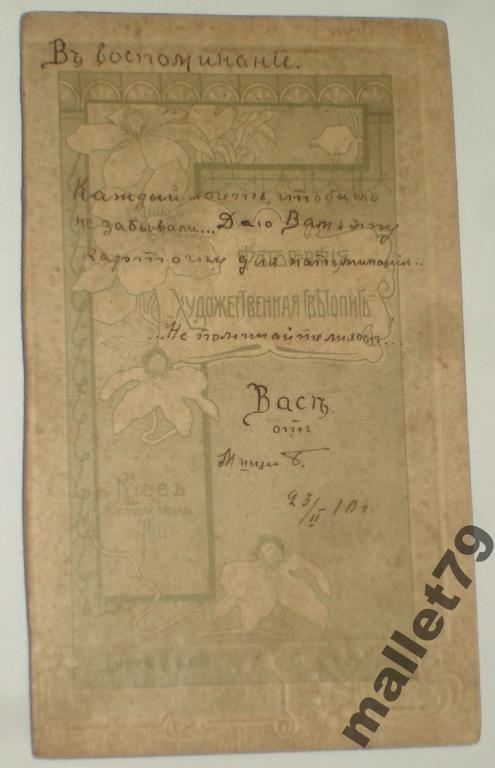 Въ воспоминаніе.
Каждый хочетъ, чтобы его
не забывали... Даю Вамъ эту
карточку для напоминанія...
Фотографія
"Художественная Свѣтопись"
...Не поминайте лихомъ...
Васѣ
отъ
Миши Б.
23/II 10 г.
Кіевъ
mallet79